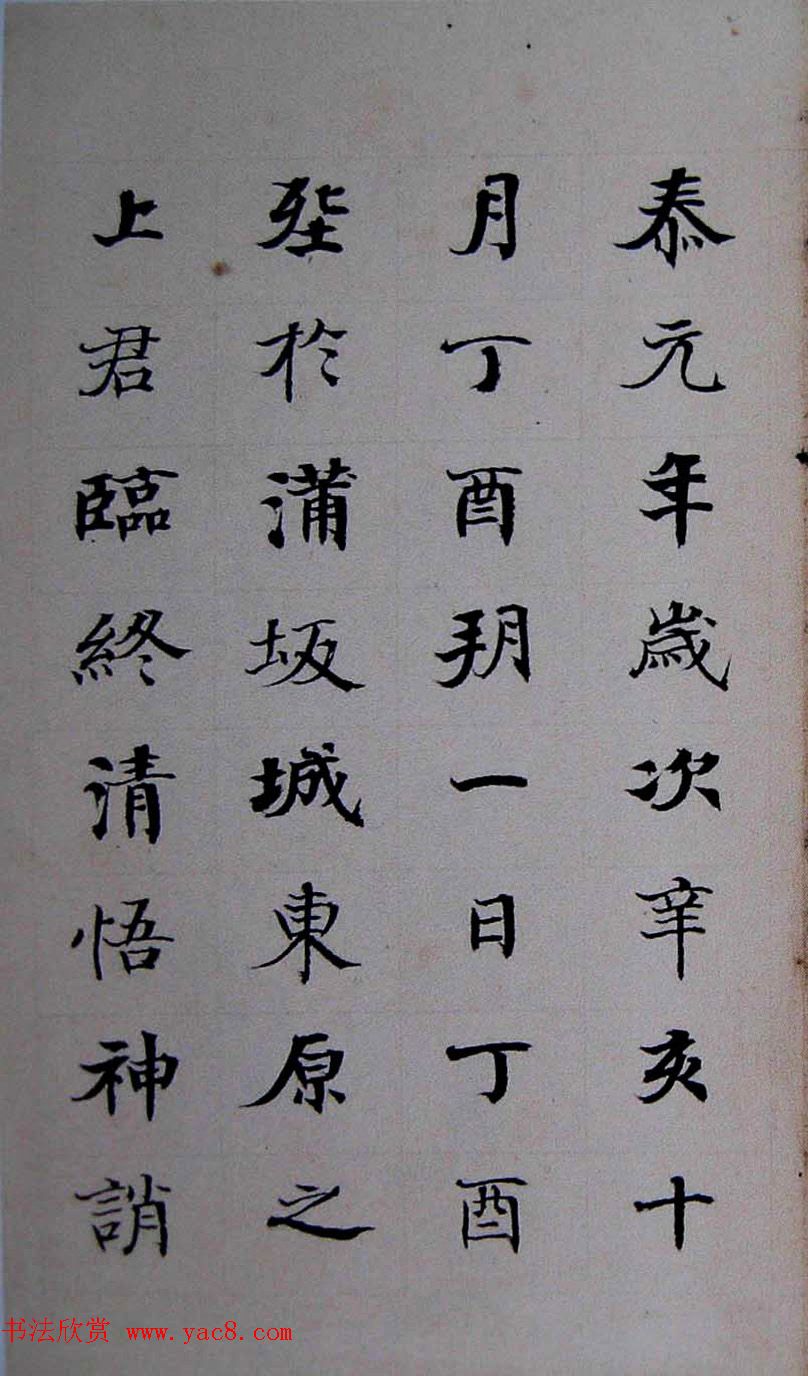 泰元年歲次辛亥十
月丁酉朔一日丁酉
塟於蒲坂城東原之
上君臨終清悟神誚
书法欣赏 www.yac8.com